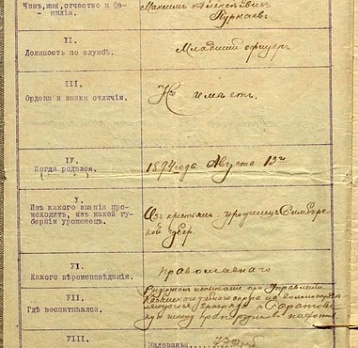 Чинъ, имя, отчество и фа-
милія.
Максимъ Алексѣевичъ
Пуркаевъ
II.
Должность по службѣ.
Младшій офицеръ
III.
Ордена и знаки отличія.
Не имѣетъ.
IV.
Когда родился.
1894 года Августа 13
V.
Изъ какого званія про-
исходитъ, изъ какой гу-
берніи уроженецъ.
Изъ крестьянъ, уроженецъ Симбирс
кой губер.
VI.
Какого вѣроисповѣданія.
Православнаго
VII.
Гдѣ воспитывался.
при Управленіи
Казанскаго округа
бригады въ Саратовс
кую школу прапорщиковъ
VIII.